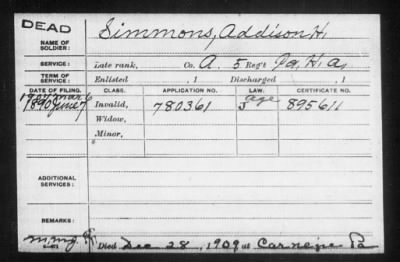 DEAD
NAME OF SOLDIER: Simmons, Addison H.
SERVICE: Late rank, Co. A. 5 Reg't Pa. H. A.
TERM OF SERVICE: Enlisted , 1 Discharged , 1
DATE OF FILING. CLASS. APPLICATION NO. LAW. CERTIFICATE NO.
1907 Mar 6 age
1890 June 7 Invalid, 780361 J 895611
Widow,
Minor,
ADDITIONAL SERVICES:
REMARKS:
Died Dec 28, 1909 at Carnegie Pa